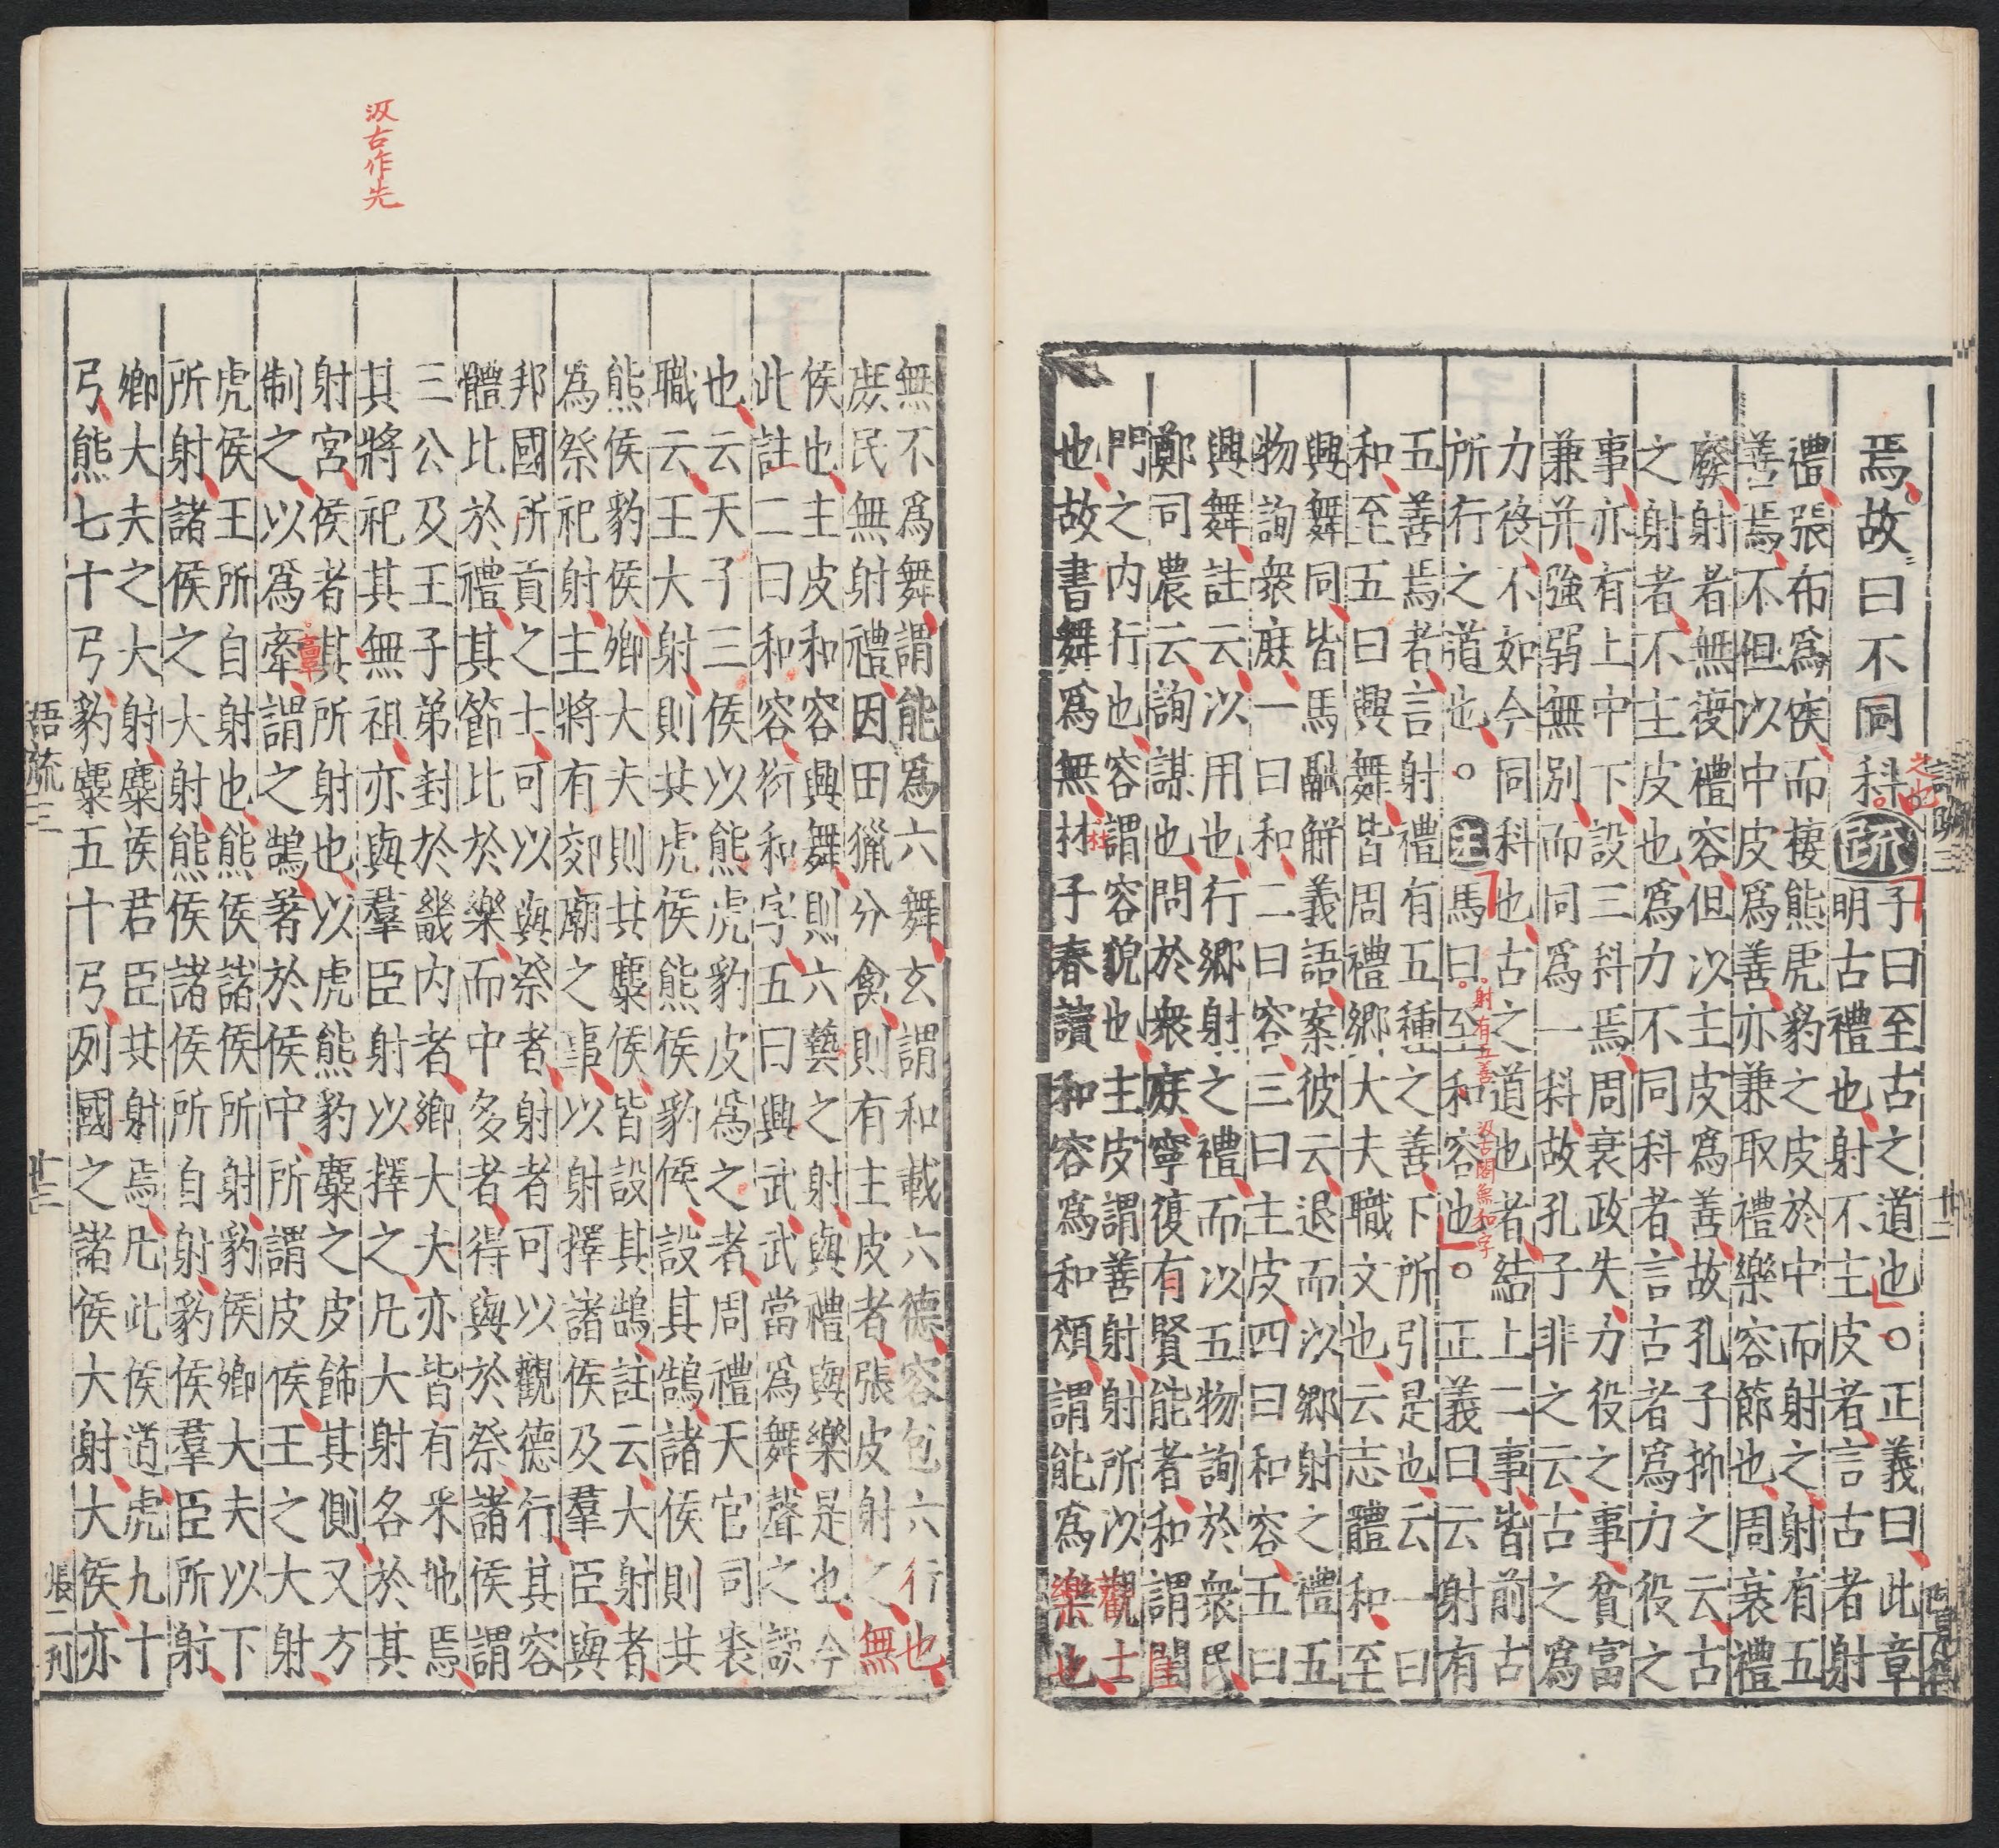 焉故曰不同科疏子曰至古之道也○正義曰此章
明古禮也射不主皮者言古者射
禮張布為侯而棲熊虎豹之皮於中而射之射有五
善焉不但以中皮爲善亦兼取禮樂容節也周衰禮
廢射者無復禮容但以主皮爲善故孔子抑之云古
之射者不主皮也爲力不同科者言古者爲力役之
事亦有上中下設三科焉周衰政失力役之事貧富
兼并強弱無別而同爲一科故孔子非之云古之爲
力役不如今同科也古之道也者結上二事皆前古
所行之道也○註馬曰至和容也○正義曰云射有
五善焉者言射禮有五種之善下所引是也云一曰
和至五曰興舞皆周禮鄉大夫職文也云志體和至
興舞同皆馬融觧義語案彼云退而以鄉射之禮五
物詢衆庶一曰和二曰容三曰主皮四曰和容五曰
興舞註云以用也行鄉射之禮而以五物詢於衆民
鄭司農云詢謀也問於衆庶寧復有賢能者和謂閨
門之内行也容謂容貌也主皮謂善射射所以觀士
也故書舞爲無材子春讀和容爲和頌謂能爲樂也
之也
射有五善
汲古閣無和字
杜
無不爲舞謂能爲六舞玄謂和載六德容包六行也
庶民無射禮因田獵分禽則有主皮者張皮射之無
侯也主皮和容興舞則六藝之射與禮與樂是也今
此註二曰和容衍和字五曰興武武當爲舞聲之誤
也云天子三侯以熊虎豹皮爲之者周禮天官司裘
職云王大射則共虎侯熊侯豹侯設其鵠諸侯則共
熊侯豹侯卿大夫則共麋侯皆設其鵠註云大射者
爲祭祀射主將有郊廟之事以射擇諸侯及羣臣與
邦國所貢之士可以與祭者射者可以觀德行其容
體比於禮其節比於樂而中多者得與於祭諸侯謂
三公及王子弟封於畿内者卿大夫亦皆有采地焉
其將祀其無祖亦與羣臣射以擇之凡大射各於其
射宮侯者其所射也以虎熊豹麋之皮飾其側又方
制之以爲牽謂之鵠著於侯中所謂皮侯王之大射
虎侯王所自射也熊侯諸侯所射豹侯卿大夫以下
所射諸侯之大射熊侯諸侯所自射豹侯羣臣所射
卿大夫之大射麋侯君臣共射焉凡此侯道虎九十
弓熊七十弓豹麋五十弓列國之諸侯大射大侯亦
汲古作先
語疏三
廿三
張二刊